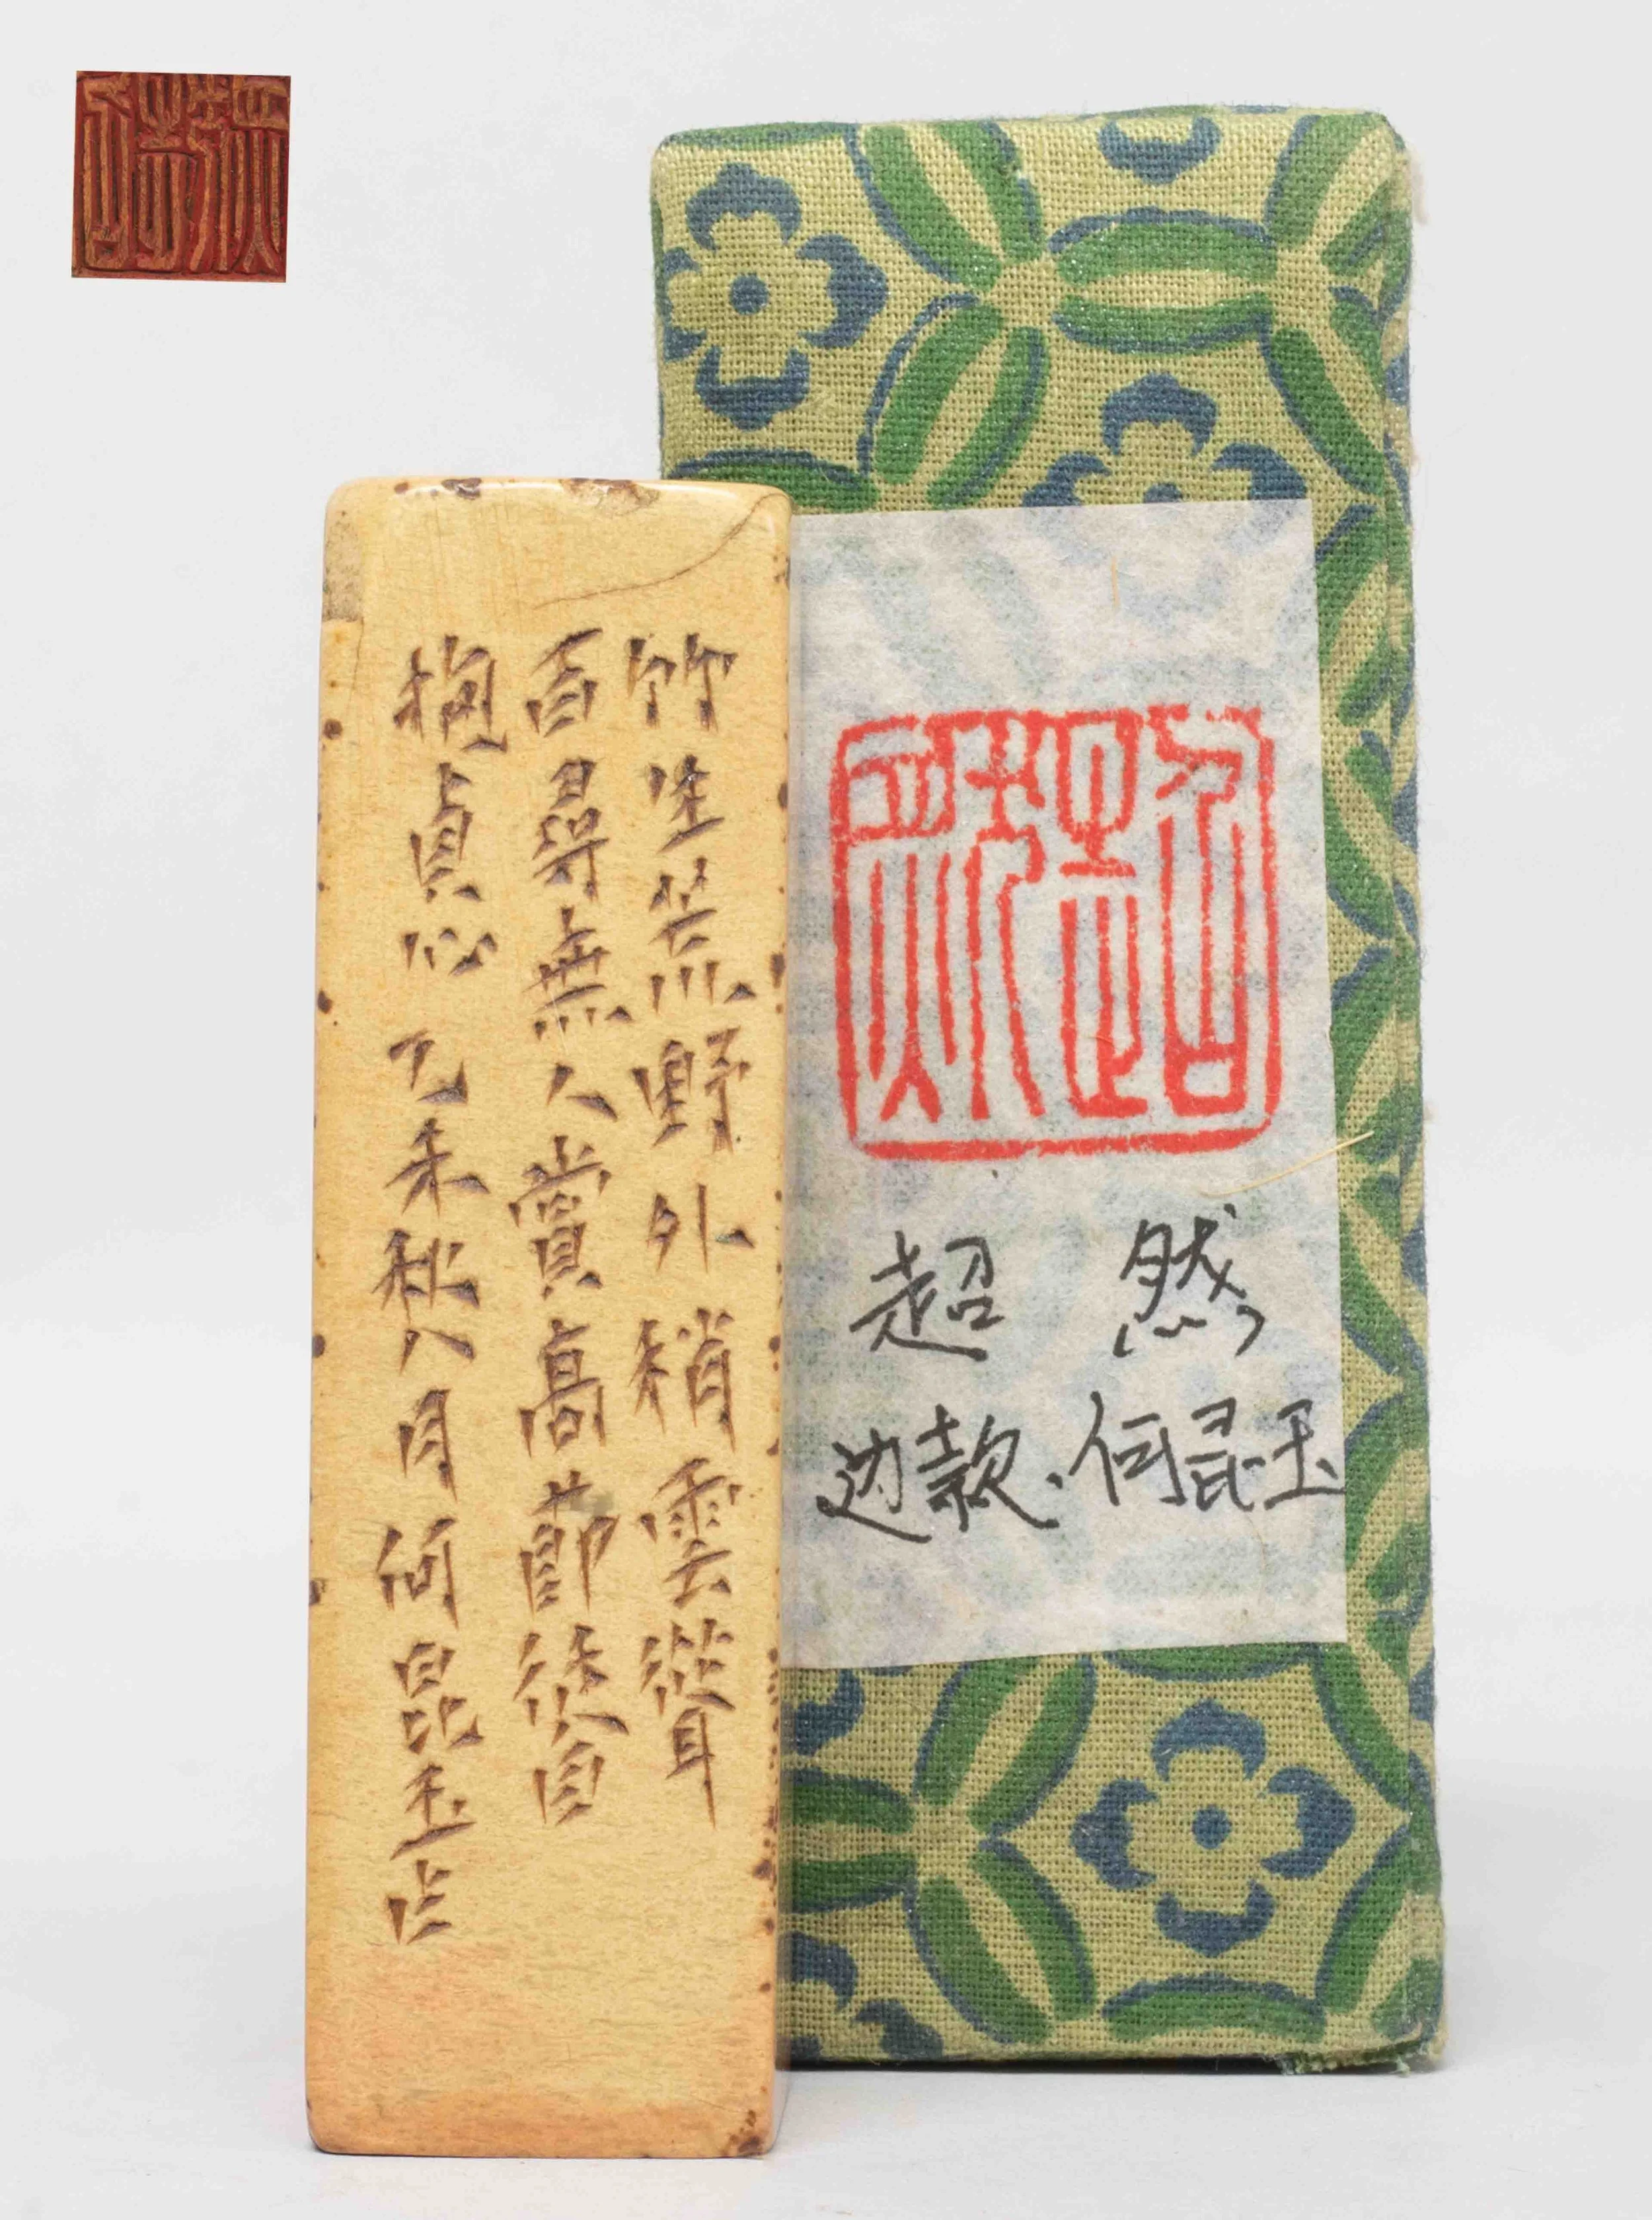 竹生荒野外稍雲聳
百尋無人賞高節從自
抱貞心乙未秋八月何昆玉作
超 然
边款.何昆玉